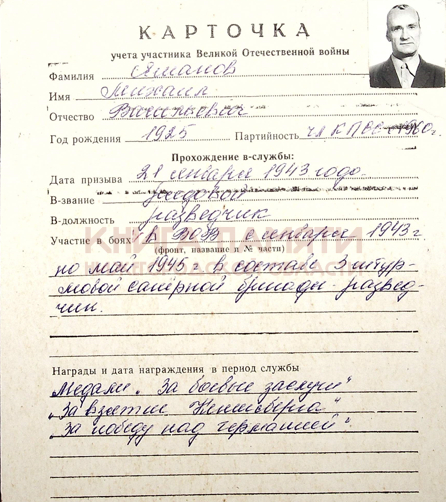 КАРТОЧКА
учета участника Великой Отечественной войны
Фамилия Атманов
Имя Михаил
Отчество Васильевич
Год рождения 1925 Партийность чл. КПСС 1960 г.
Прохождение в-службы:
Дата призыва 21 января 1943 года
В-звание рядовой
В-должность разведчик
Участие в боях в ВОВ с января 1943 г
(фронт, название и № части)
по май 1945 г в составе 3 штур-
мовой саперной бригады - развед-
чик.
КНИГА ПАМЯТИ
Награды и дата награждения в период службы
Медали „За боевые заслуги"
„За взятие Кенигсберга"
„За победу над Германией".